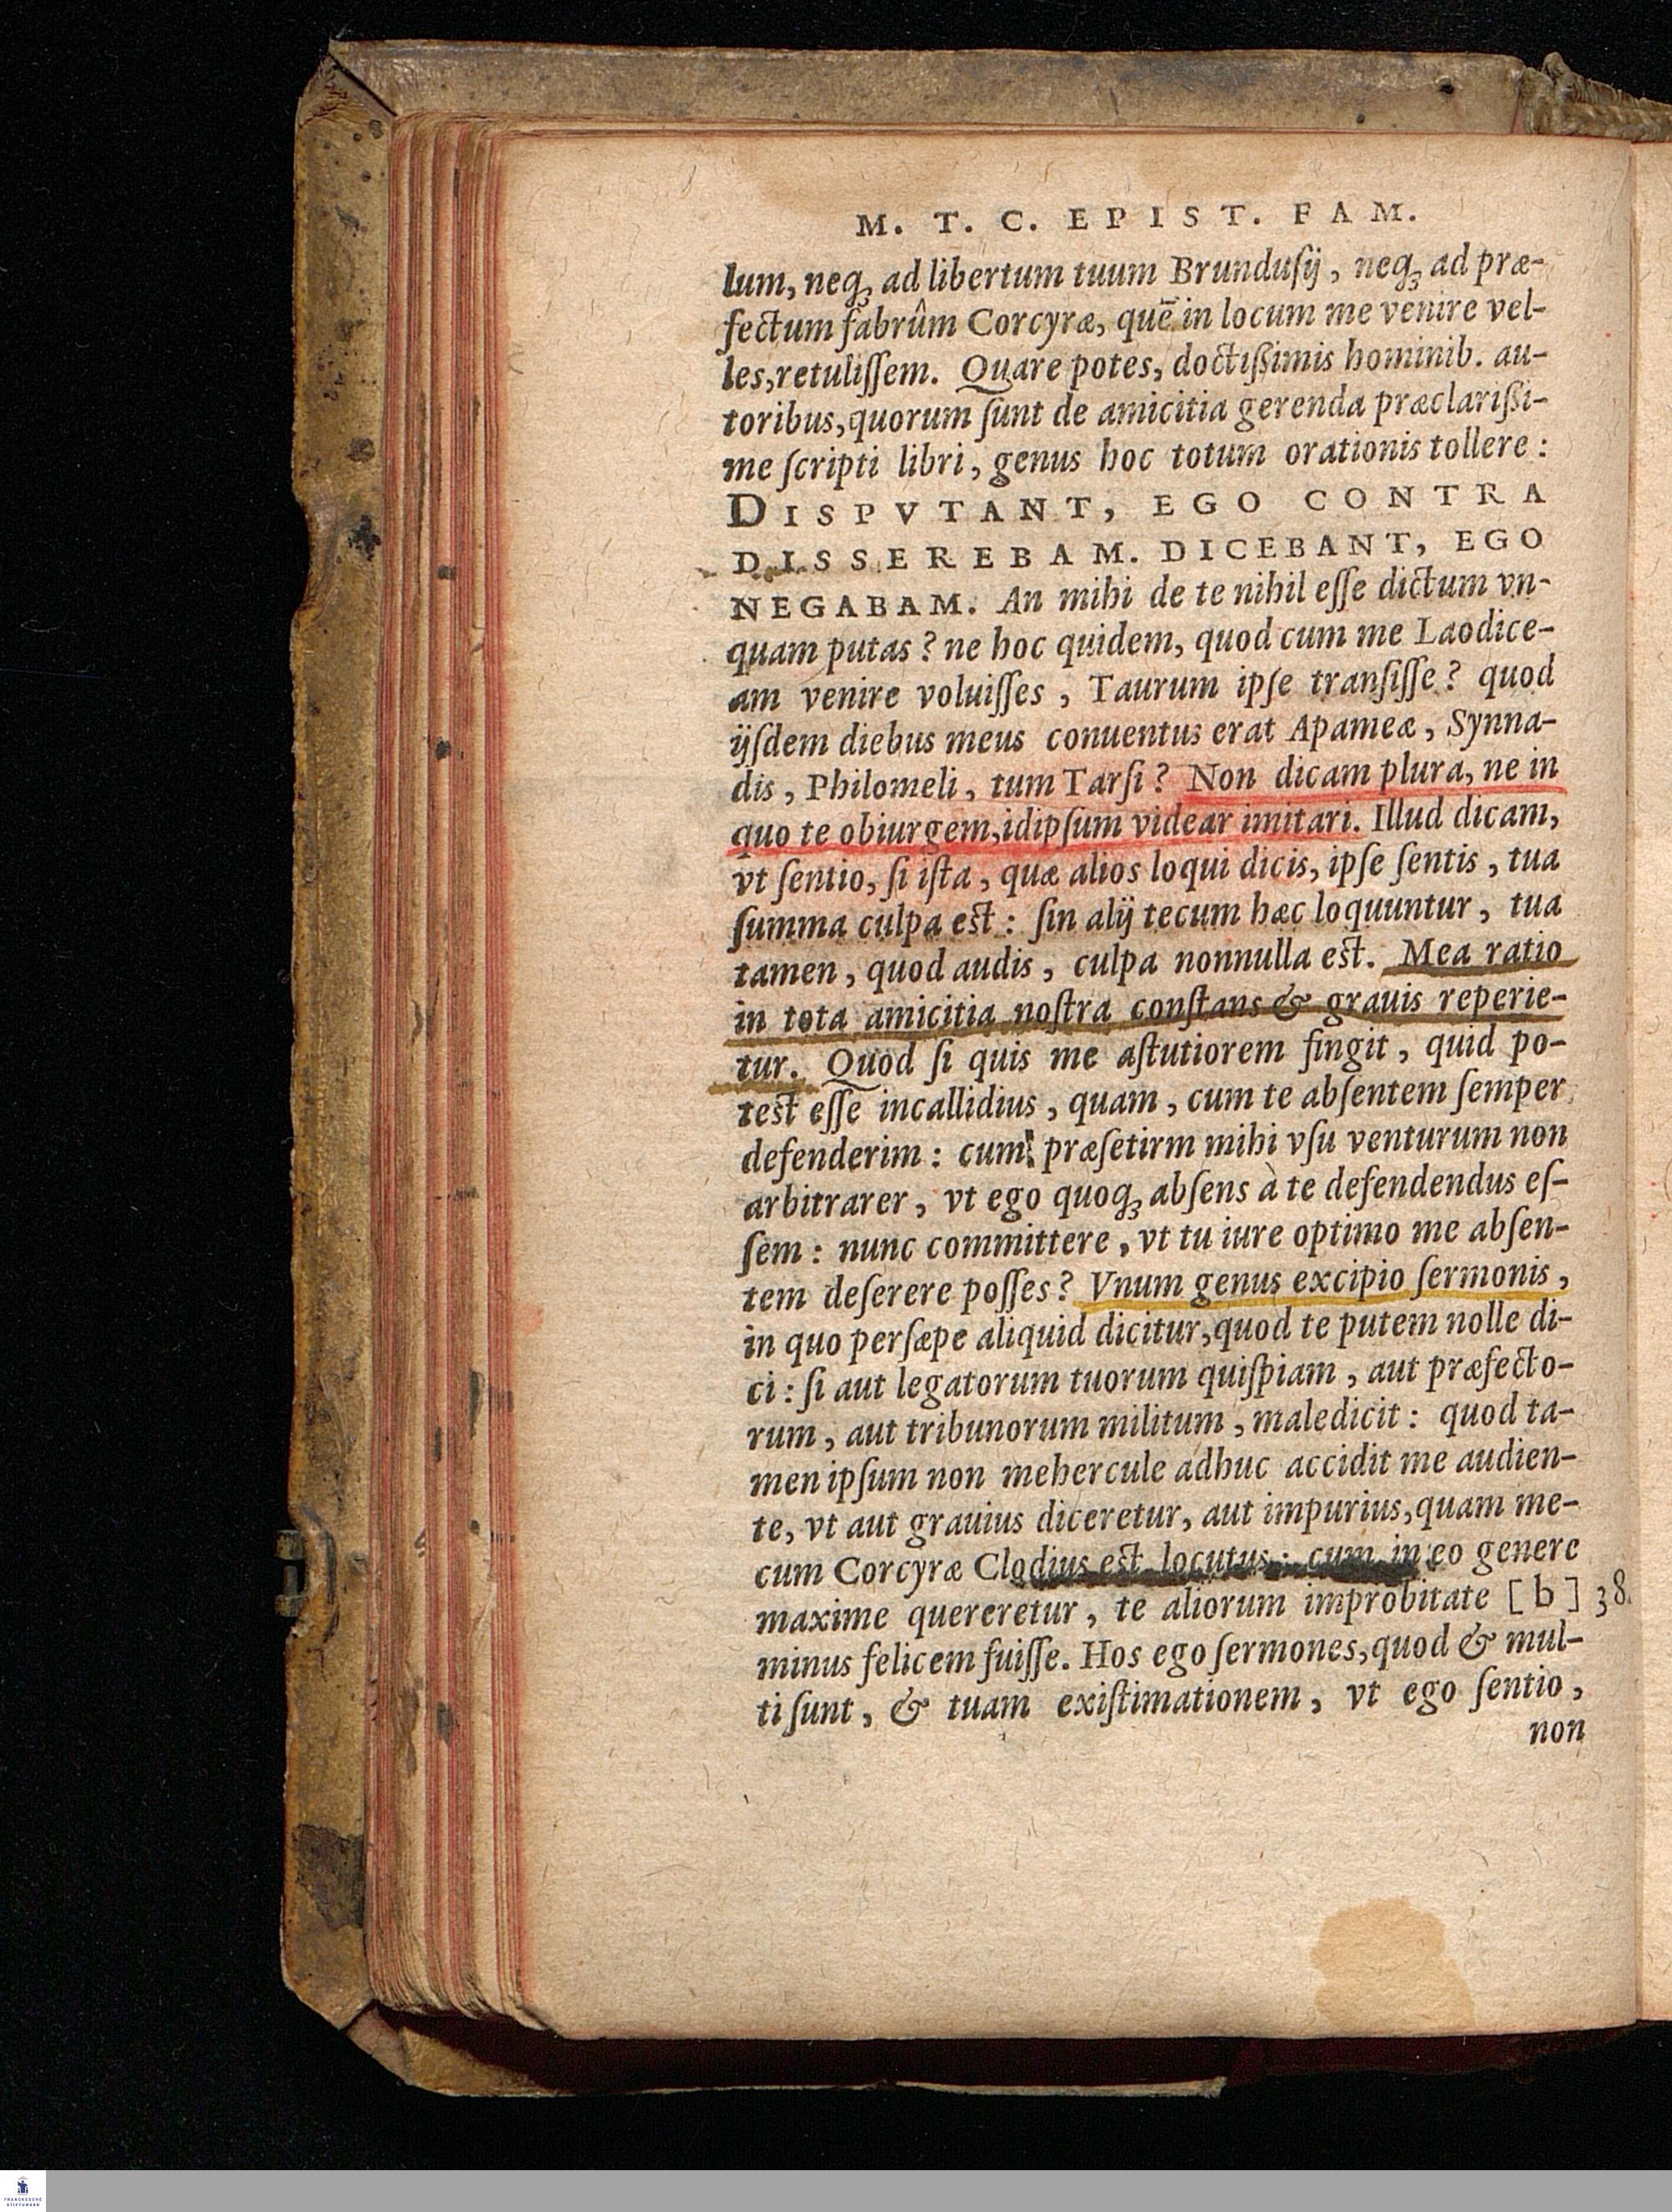 M. T. C. EPIST. FAM.
lum, neqꝫ ad libertum tuum Brunduſij, neqꝫ ad præ-
fectum fabrûm Corcyræ, quẽ in locum me venire vel-
les, retuliſſem. Quare potes, doctißimis hominib. au-
toribus, quorum ſunt de amicitia gerenda præclarißi-
me ſcripti libri, genus hoc totum orationis tollere:
DISPVTANT, EGO CONTRA
DISSEREBAM. DICEBANT, EGO
NEGABAM. An mihi de te nihil eſſe dictum vn-
quam putas? ne hoc quidem, quod cum me Laodice-
am venire voluiſſes, Taurum ipſe tranſiſſe? quod
ijſdem diebus meus conuentus erat Apameæ, Synna-
dis, Philomeli, tum Tarſi? Non dicam plura, ne in
quo te obiurgem, idipſum videar imitari. Illud dicam,
vt ſentio, ſi iſta, quæ alios loqui dicis, ipſe ſentis, tua
ſumma culpa est: ſin alij tecum hæc loquuntur, tua
tamen, quod audis, culpa nonnulla est. Mea ratio
in tota amicitia noſtra conſtans & grauis reperie-
tur. Quod ſi quis me aſtutiorem fingit, quid po-
test eſſe incallidius, quam, cum te abſentem ſemper
defenderim: cum præſetirm mihi vſu venturum non
arbitrarer, vt ego quoqꝫ abſens à te defendendus eſ-
ſem: nunc committere, vt tu iure optimo me abſen-
tem deſerere poſſes? Vnum genus excipio ſermonis,
in quo perſæpe aliquid dicitur, quod te putem nolle di-
ci: ſi aut legatorum tuorum quiſpiam, aut præfecto-
rum, aut tribunorum militum, maledicit: quod ta-
men ipſum non mehercule adhuc accidit me audien-
te, vt aut grauius diceretur, aut impurius, quam me-
cum Corcyræ Clodius est locutus: cum in eo genere
maxime quereretur, te aliorum improbitate [b] 38.
minus felicem fuiſſe. Hos ego ſermones, quod & mul-
ti ſunt, & tuam exiſtimationem, vt ego ſentio,
non
FRANCKESCHE
STIFTUNGEN